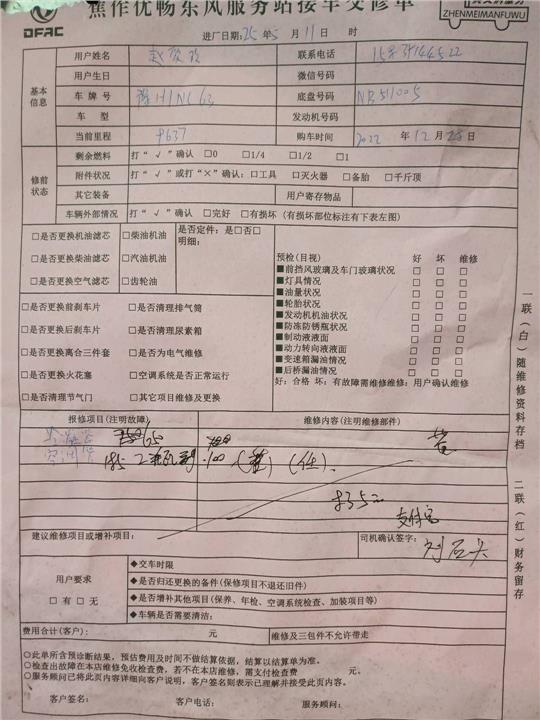 焦作优畅东风服务站接车交修单
DFAC
ZHENMEIMANFUWU
进厂日期: 25 年5 月 11 日 时
基本信息
用户姓名 联系电话
用户生日 微信号码
车牌号 底盘号码
车型 发动机号码
当前里程 购车时间 2022 年 12 月 日
修前状态
剩余燃料 打“√”确认 □0 □1/4 □1/2 □1
附件状况 打“√”或打“×”确认:□工具 □灭火器 □备胎 □千斤顶
其它装备 用户寄存物品
车辆外部情况 打“√”确认 □完好 □有损坏 (有损坏部位标注有下表左图)
□是否更换机油滤芯 □柴油机油 是否定件:是□否□
明细:
□是否更换柴油滤芯 □汽油机油
□是否更换空气滤芯 □齿轮油
□是否更换前刹车片 □是否清理排气筒
□是否更换后刹车片 □是否清理尿素箱
□是否更换离合三件套 □是否为电气维修
□是否更换火花塞 □空调系统是否正常运行
□是否清理节气门 □其它项目维修及更换
预检(目视) 好 坏 维修
■前挡风玻璃及车门玻璃状况 □ □ □
■灯具情况 □ □ □
■油量状况 □ □ □
■轮胎状况 □ □ □
■发动机机油状况 □ □ □
■防冻防锈瓶状况 □ □ □
■制动液液面 □ □ □
■动力转向液液面 □ □ □
■变速箱漏油情况 □ □ □
■后桥漏油情况 □ □ □
好:合格 坏:有故障需维修维修:用户确认维修
报修项目(注明故障) 维修内容(注明维修部件)
支付宝
建议维修项目或增补项目: 司机确认签字:
用户要求
□有 □无
◆交车时限
◆是否归还更换的备件(保修项目不退还旧件)
◆是否增补其他项目(保养、年检、空调系统检查、加装项目等)
◆车辆是否需要清洁:
费用合计(客户): 元 维修及三包件不允许带走
○此单所含预诊断结果,预估费用及时间不做结算依据,结算以结算单为准。
○检查出故障在本店维修免收检查费,若不在本店维修,需支付检查费 元。
○服务顾问已将此页内容详细向客户说明,客户签名则表示已理解并接受此页内容。
客户签名: 客户电话: 服务顾问:
一联(白)随维修资料存档
二联(红)财务留存